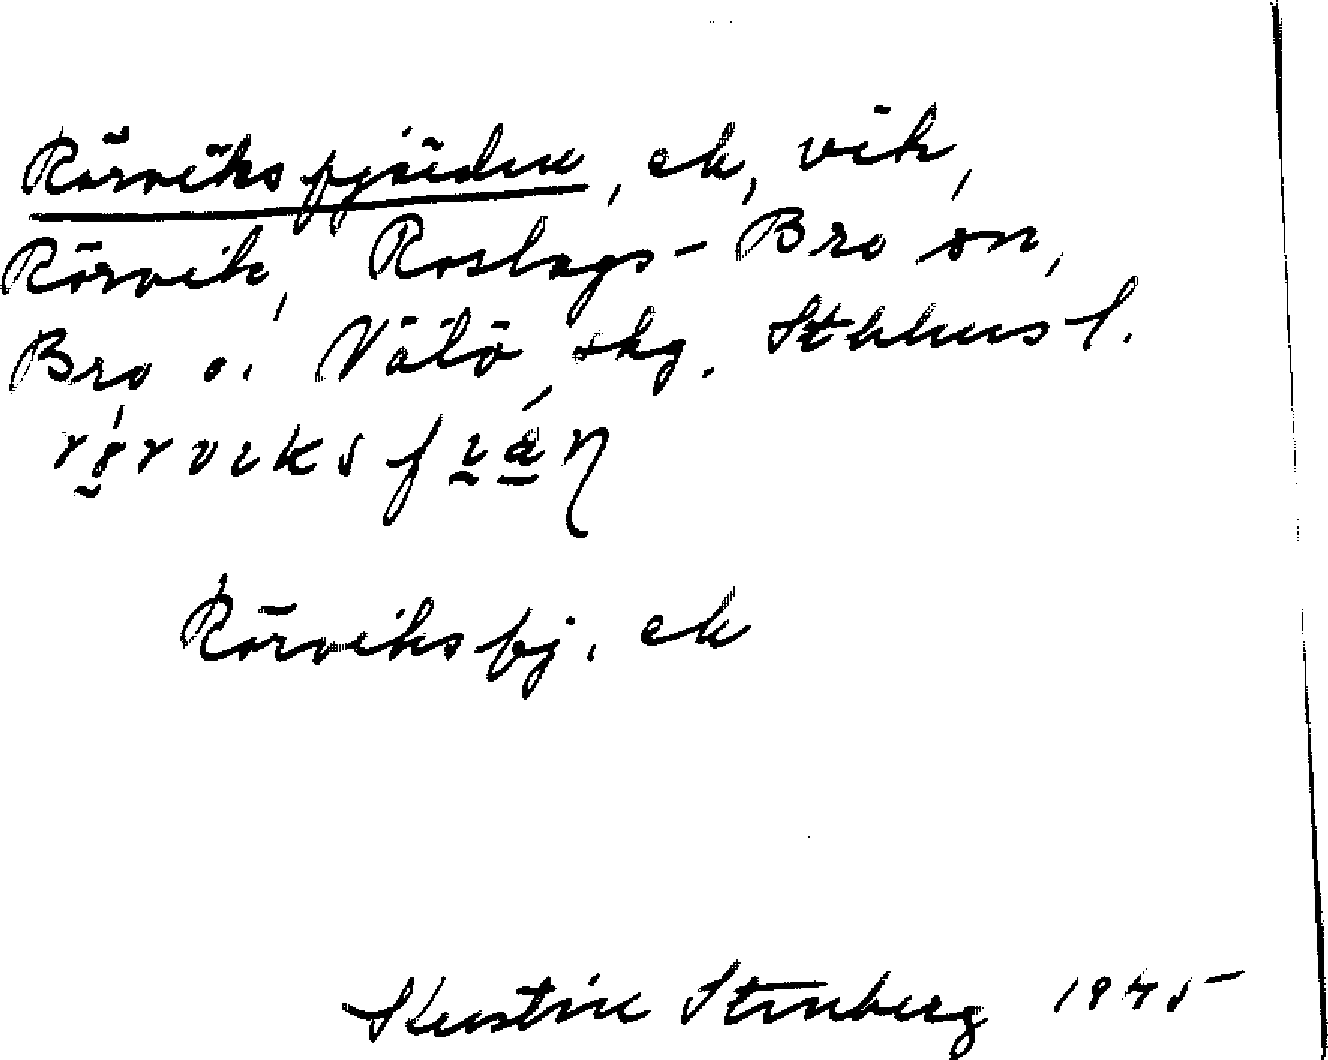 Rörviksfjärden, ek, vik,
Rörvik, Roslags-Bro sn,
Bro o. Vätö skg. Sthlms l.
Rörviksfj. ek
Kerstin Stenberg 1945